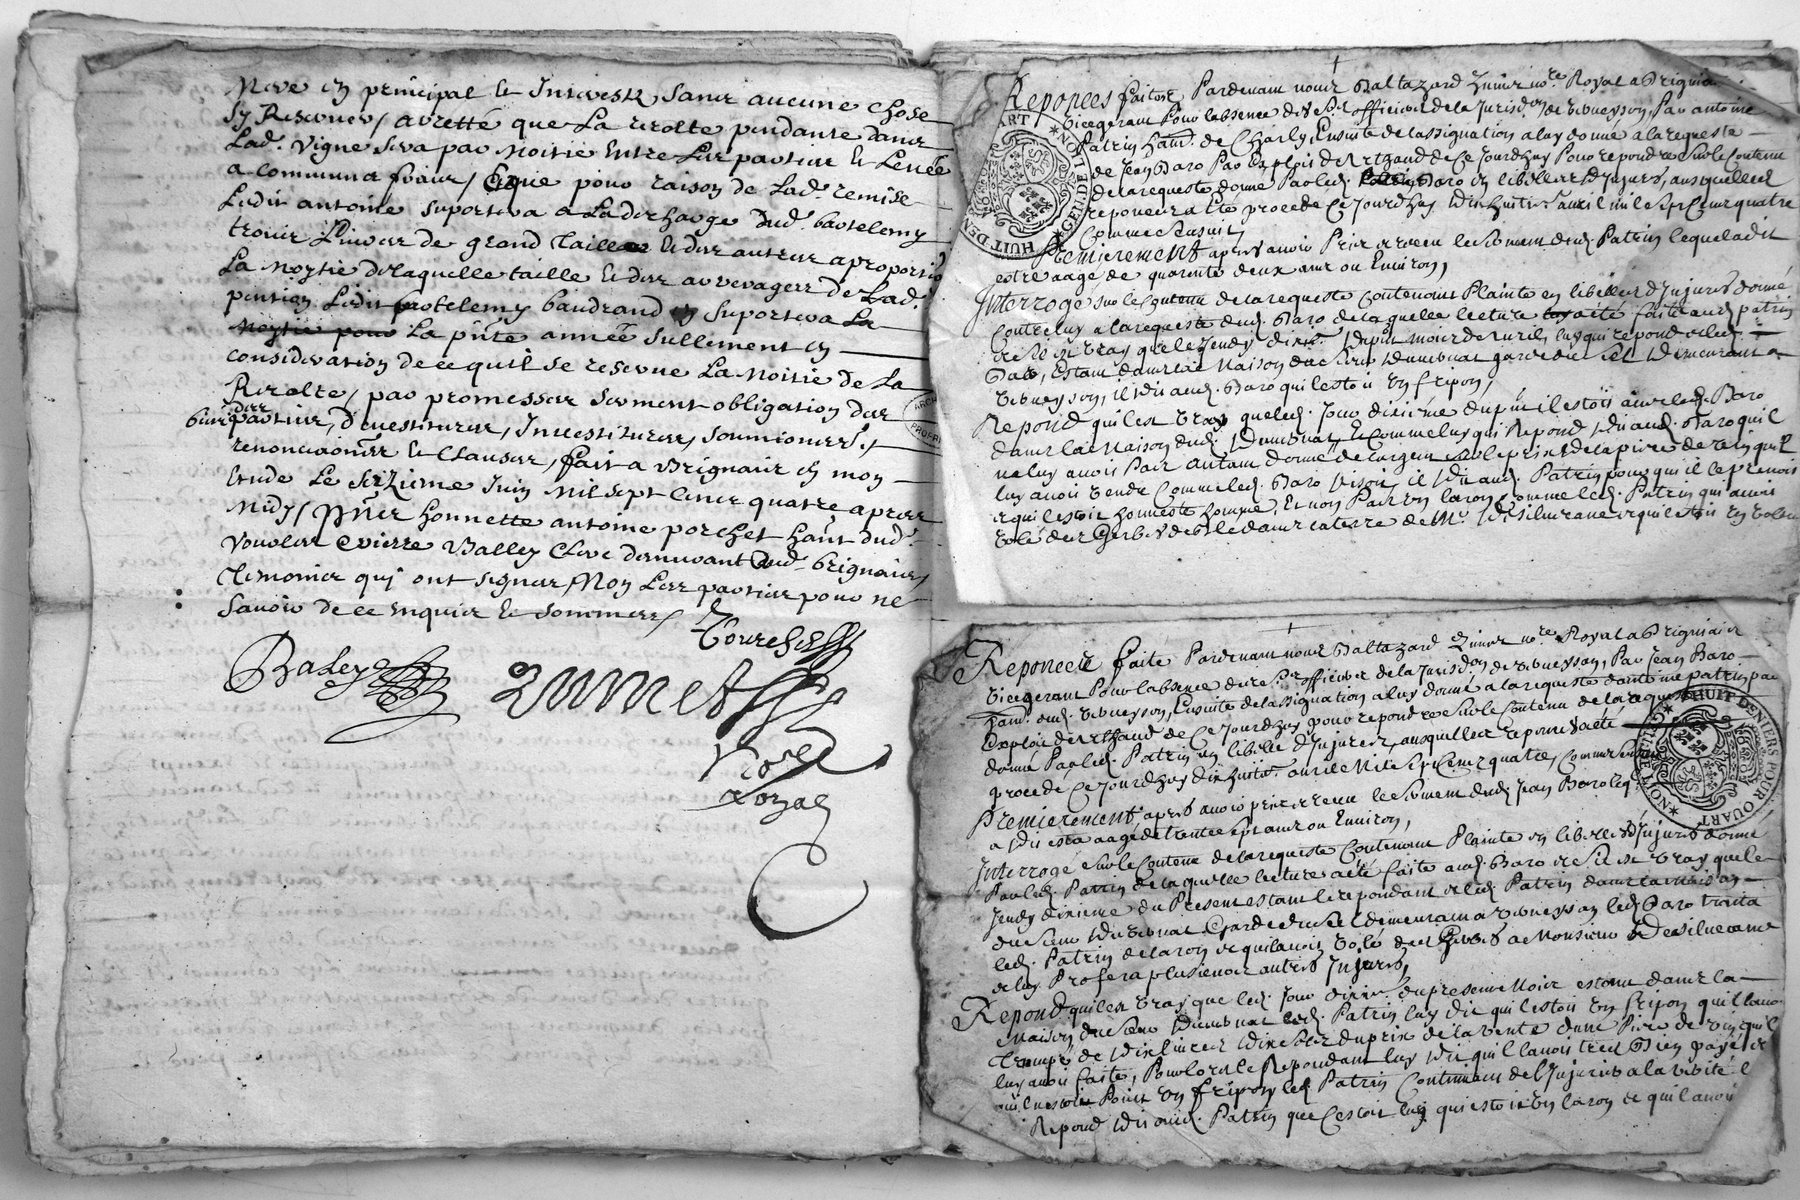 Neve en principal et Interestz, sans aucune chose
sy Reserver, arretté que La recolte pendante dans
Lad. Vigne sera par Moitié Entre Les parties et Levée
a communs fraix, et que pour raison de Lad. remise
Ledit antoine suportera a La descharge dud. bartelemy
trois Livres de grand Tailles et des autres a proportion
La Moytié de laquelle taille et des arrerages de Lad.
pention Ledit bartelemy baudrand suportera La
Moytié pour La pnte année sullement en
consideration de ce quil se reserve La Moitié de La
Recolte, par promesses serment obligation des
biens des parties, devestitures, Investitures, soumissions,
renonciaons et Clauses, fait a Brignais en mon
Etude Le seizieme Juin Mil sept Cent quatre apres
Midy, pnts honnette antoine porchet hant dud.
Vourles Pierre Balley Clerc demeurant aud. brignais
Temoins qui ont signez, Non Les parties pour ne
savoir de ce enquis et sommees,
Balley
Zumet
No.re
Royal
Reponces faites Pardevant nous Baltazard Zumet no.re Royal a Brignais
Vicegerant Pour labsence des Srs officiers de la Jurisdon de Veneyson, Par antoine
Patrin hant. de Charly, Ensuite de lassignation a luy donné a la requeste
de Jean Baro Par Exploit d'Arthaud de Ce Jourdhuy Pour repondre sur le Contenu
de la requeste donné Par led. Baro en libelle d'Injures, ausquelles
reponces a Eté procedé Ce Jourdhuy dix huitie. avril mil sept Cent quatre
Comme sensuit,
Premierement apres avoir Pris et receu le serment dud. Patrin lequel a dit
estre aagé de quarente deux ans ou Environ,
Interrogé sur le Contenu de la requeste Contenant Plainte en libelle d'Injures donné
Contre luy a la requeste dud. Baro de laquelle lecture a eté faite aud. patrin
et sil est vray que le Jeudy dixie. du pnt mois de avril, luy qui repond et led.
Baro, Estant dans la Maison du sieur Dumbnat garde du sel demeurant a
Veneyson, il dit aud. Baro quil estoit un fripon,
Repond quil est vray que led. Jour dixième du pnt il estoit avec led. Baro
dans la Maison dud. Dumbnat, Et Comme luy qui Repond dit aud. Baro quil
ne luy avoit Pair autant donné de largent sur le prix de la piece de vin quil
luy avoit vendu Comme led. Baro disoit, il dit aud. Patrin pour qui il le prenoit
et quil estoit honneste homme, Et non Pas un laron Comme led. Patrin qui avoit
volé des Gerbes de blé dans la terre de Mr. De silvecane et quil estoit un voleur
Reponces faite Pardevant nous Baltazard Zumet no.re Royal a Brignais
Vicegerant Pour labsence des Srs officiers de la Jurisdon de Veneyson, Par Jean Baro
hant. dud. Veneyson, Ensuite de lassignation a luy donné a la requeste dantoine patrin par
Exploit d'Arthaud de Ce Jourdhuy pour repondre sur le Contenu de la requeste
donné Par led. Patrin en libelle d'Injures, ausquelles reponces a eté
procedé Ce Jourdhuy dix huitie. avril Mil sept Cent quatre, Comme sensuit
Premierement apres avoir pris et receu le serment dud. Jean Baro leq.
a dit estre aagé de trente sept ans ou Environ,
Interrogé sur le Contenu de la requeste Contenant Plainte en libelle d'Injures donné
Par led. Patrin de laquelle lecture a eté faite aud. Baro et sil est vray que le
Jeudy dixieme du Present estant le repondant et led. Patrin dans la Maison
du sieur Dumbnat Garde du sel demeurant a Veneysson led. Baro traita
led. Patrin de laron et quil avoit volé des Gerbes a Monsieur De silvecane
et luy Profera plusieurs autres Injures,
Repond quil est vray que led. Jour dixie. du present Mois estant dans la
Maison du sieur Dumbnat led. Patrin luy dit quil estoit un fripon quil lavoit
trompé de dix livres dix sols du prix de la vente dune Piece de vin quil
luy avoit faite, Pour lors le Repondant luy dit quil lavoit tres Bien payé et
quil nestoit Point un fripon led. Patrin Continuant des Injures a la verité le
Repond dit aud. Patrin que Cestoit luy qui estoit un laron et quil avoit
GEN DE LION * NOT ET * HUIT DENIERS POUR QUART